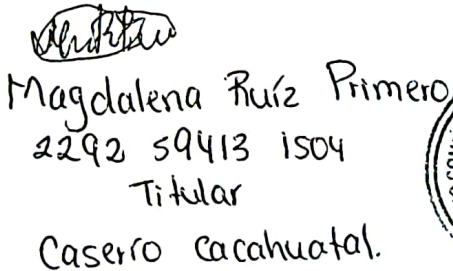 Magdalena Ruíz Primero
2292 59413 1504
Titular
Caserío Cacahuatal.